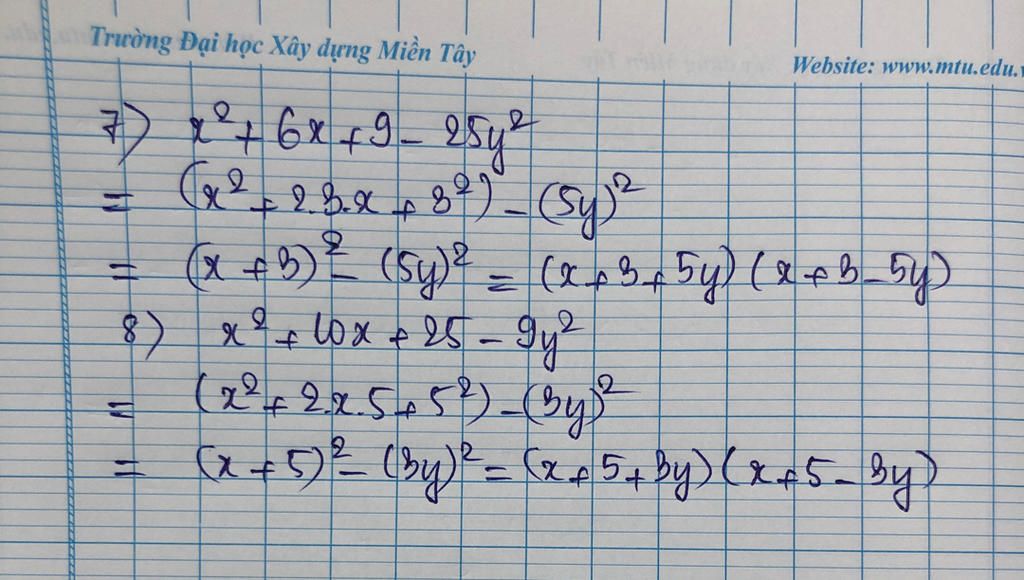 Trường Đại học Xây dựng Miền Tây
Website: www.mtu.edu.v
7) x² + 6x + 9 - 25y²
= (x² + 2.3.x + 3²) - (5y)²
= (x + 3)² - (5y)² = (x + 3 + 5y) (x + 3 - 5y)
8) x² + 10x + 25 - 9y²
= (x² + 2.x.5 + 5²) - (3y)²
= (x + 5)² - (3y)² = (x + 5 + 3y) (x + 5 - 3y)